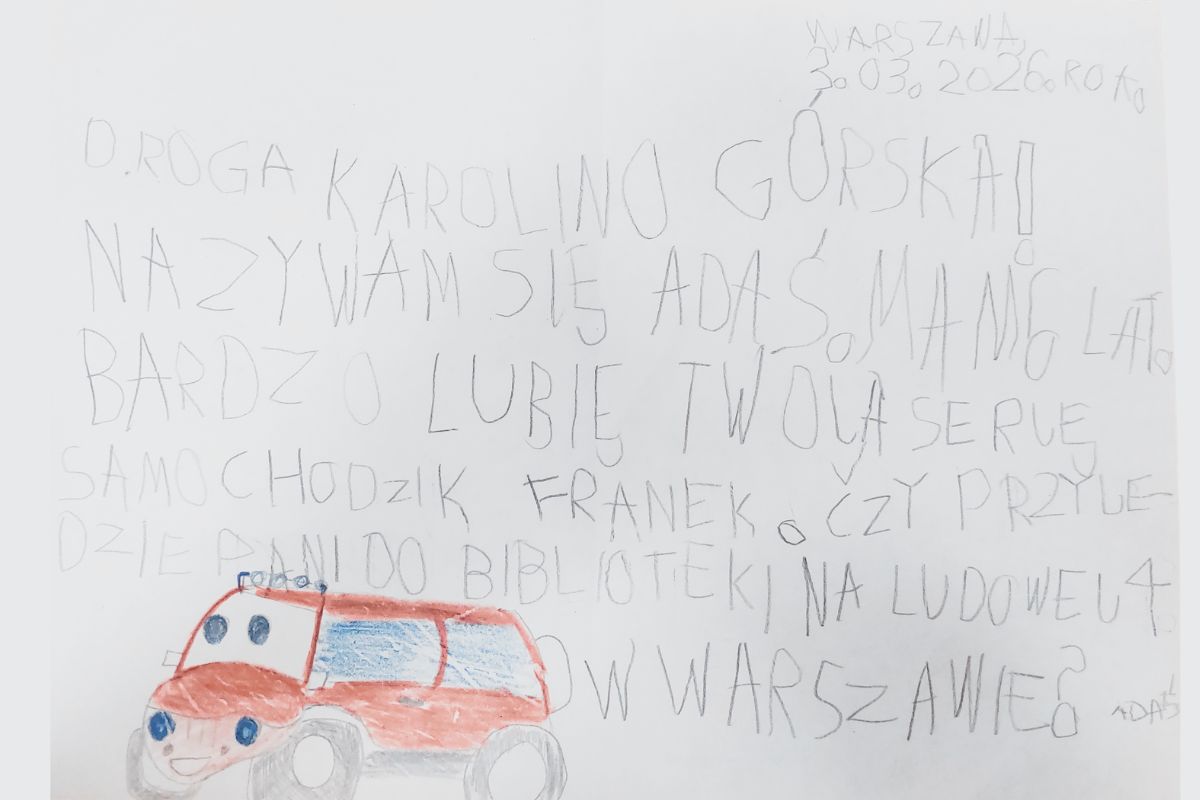 WARSZAWA,
3.03.2026.ROK.
D.ROGA KAROLINO GÓRSKA!
NAZYWAM SIĘ ADAŚ. MAM 6 LAT.
BARDZO LUBIĘ TWOJĄ SERJĘ
SAMOCHODZIK FRANEK. CZY PRZYJE-
DZIE PANI DO BIBLIOTEKI NA LUDOWEJ 4
W WARSZAWIE?
ADAŚ